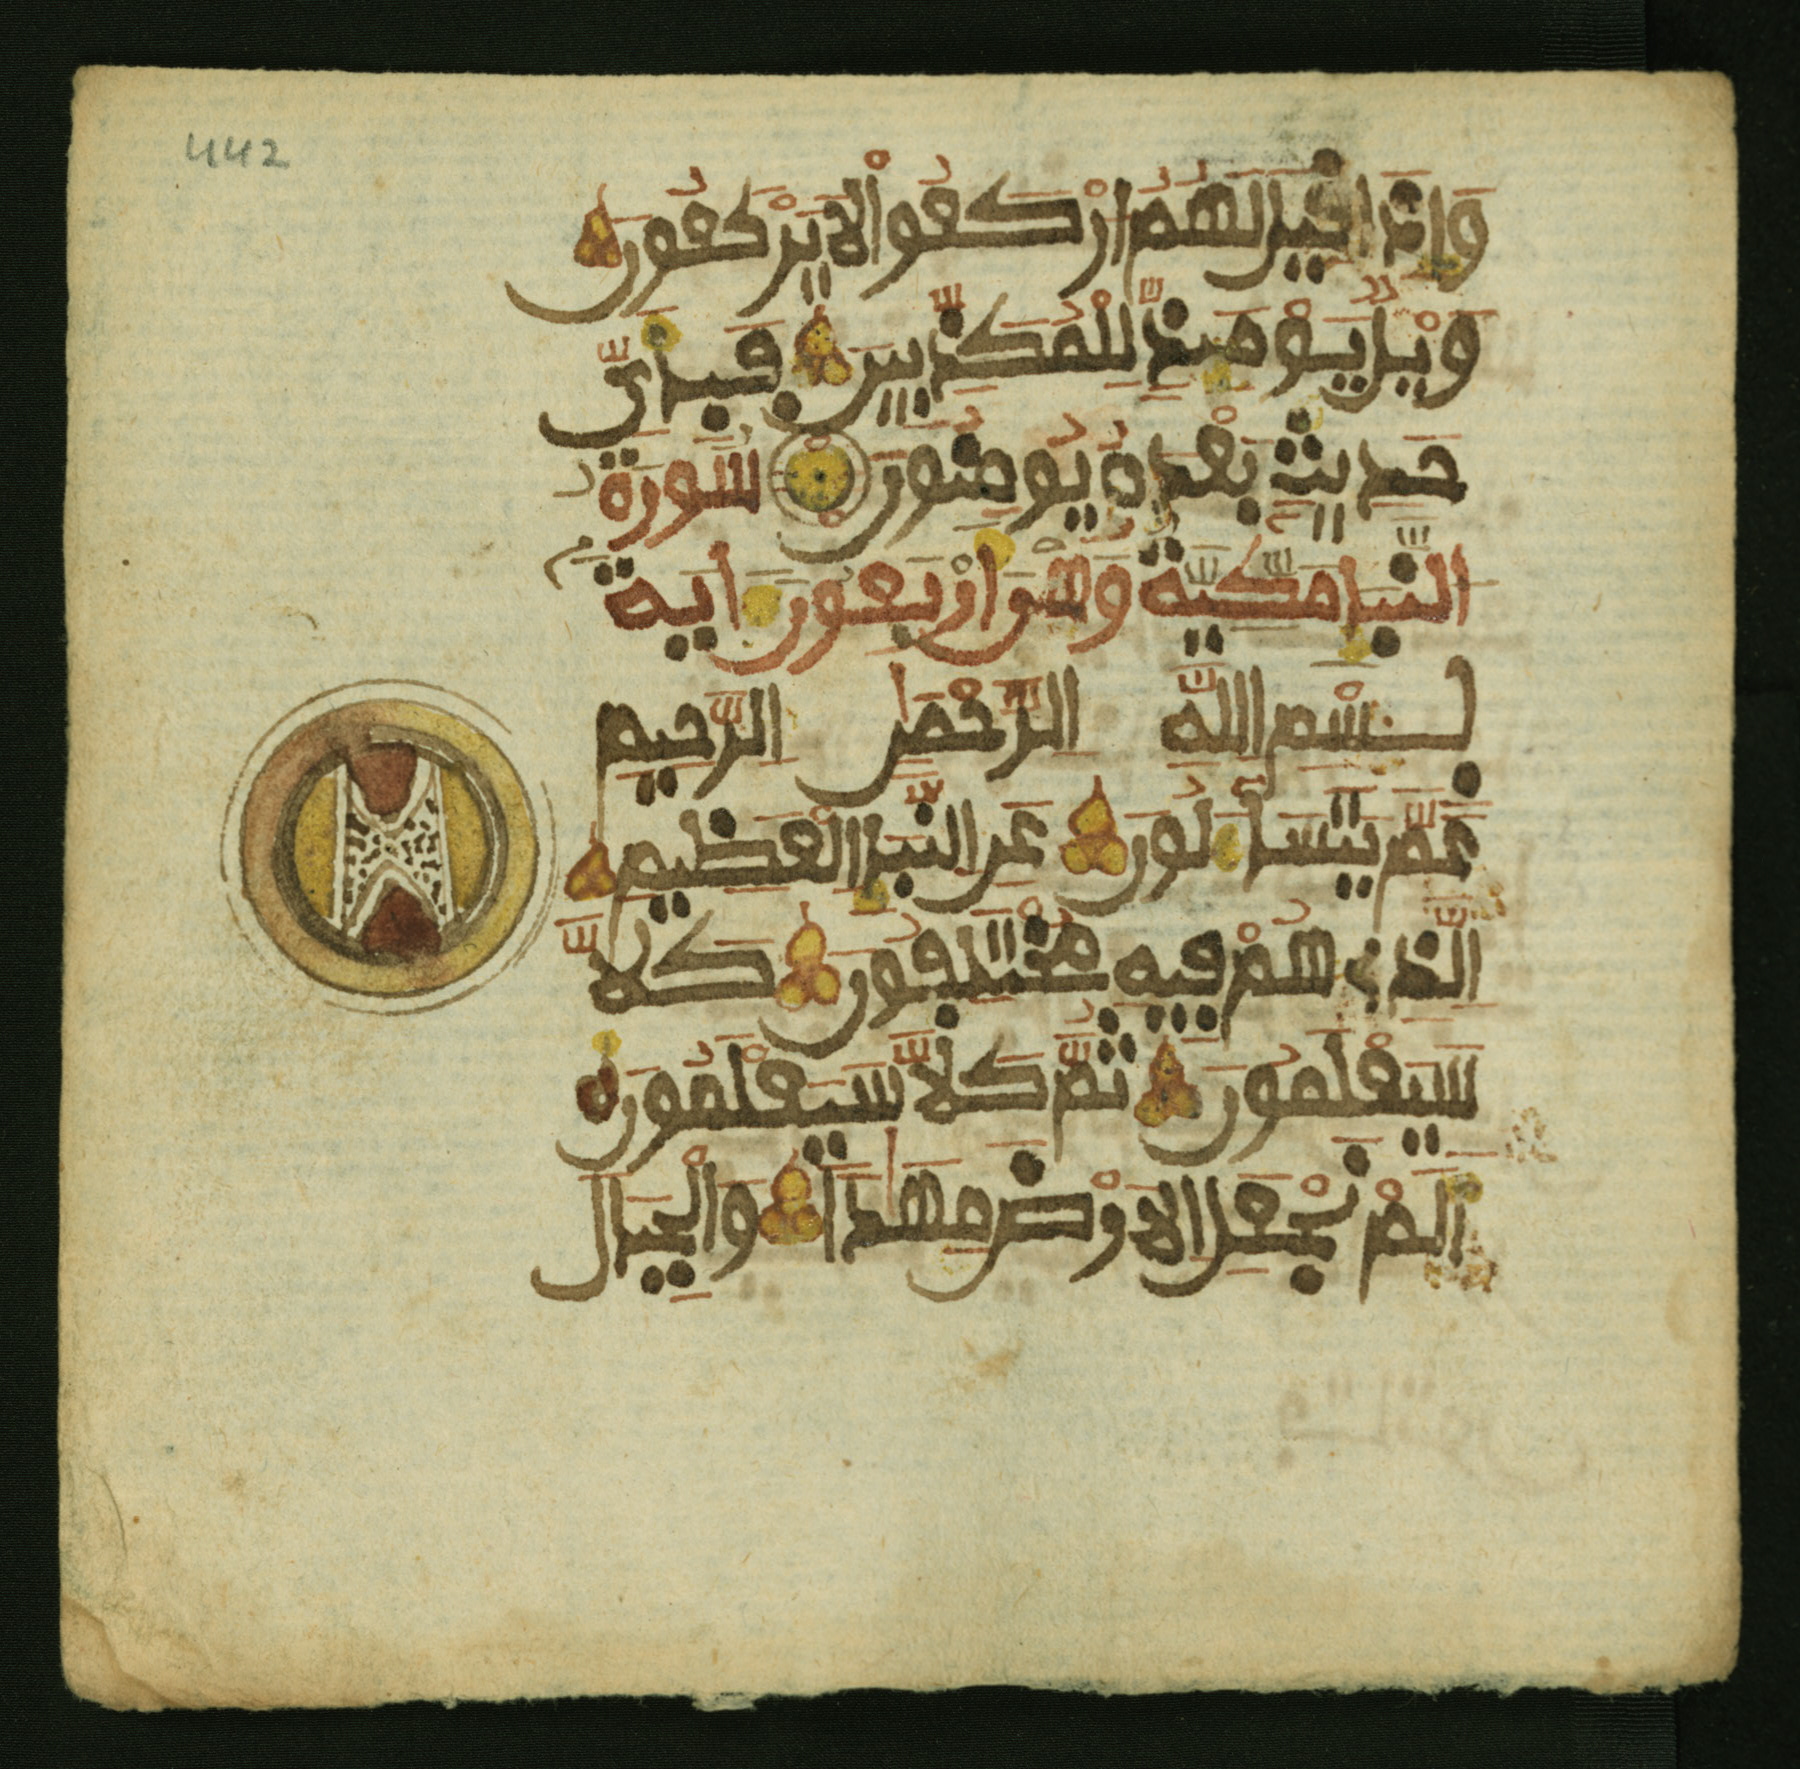 442
وَإِذَا قِيلَ لَهُمُ ارْكَعُوا لَا يَرْكَعُونَ
وَيْلٌ يَوْمَئِذٍ لِّلْمُكَذِّبِينَ فَبِأَيِّ
حَدِيثٍ بَعْدَهُ يُومِنُونَ سُورَةُ
النَّبَإِ مَكِّيَّةٌ وَهْىَ أَرْبَعُونَ ءَايَةً
بِسْمِ اللَّهِ الرَّحْمَٰنِ الرَّحِيمِ
عَمَّ يَتَسَاءَلُونَ عَنِ النَّبَإِ الْعَظِيمِ
الَّذِي هُمْ فِيهِ مُخْتَلِفُونَ كَلَّا
سَيَعْلَمُونَ ثُمَّ كَلَّا سَيَعْلَمُونَ
أَلَمْ نَجْعَلِ الْأَرْضَ مِهَٰدًا وَالْجِبَالَ